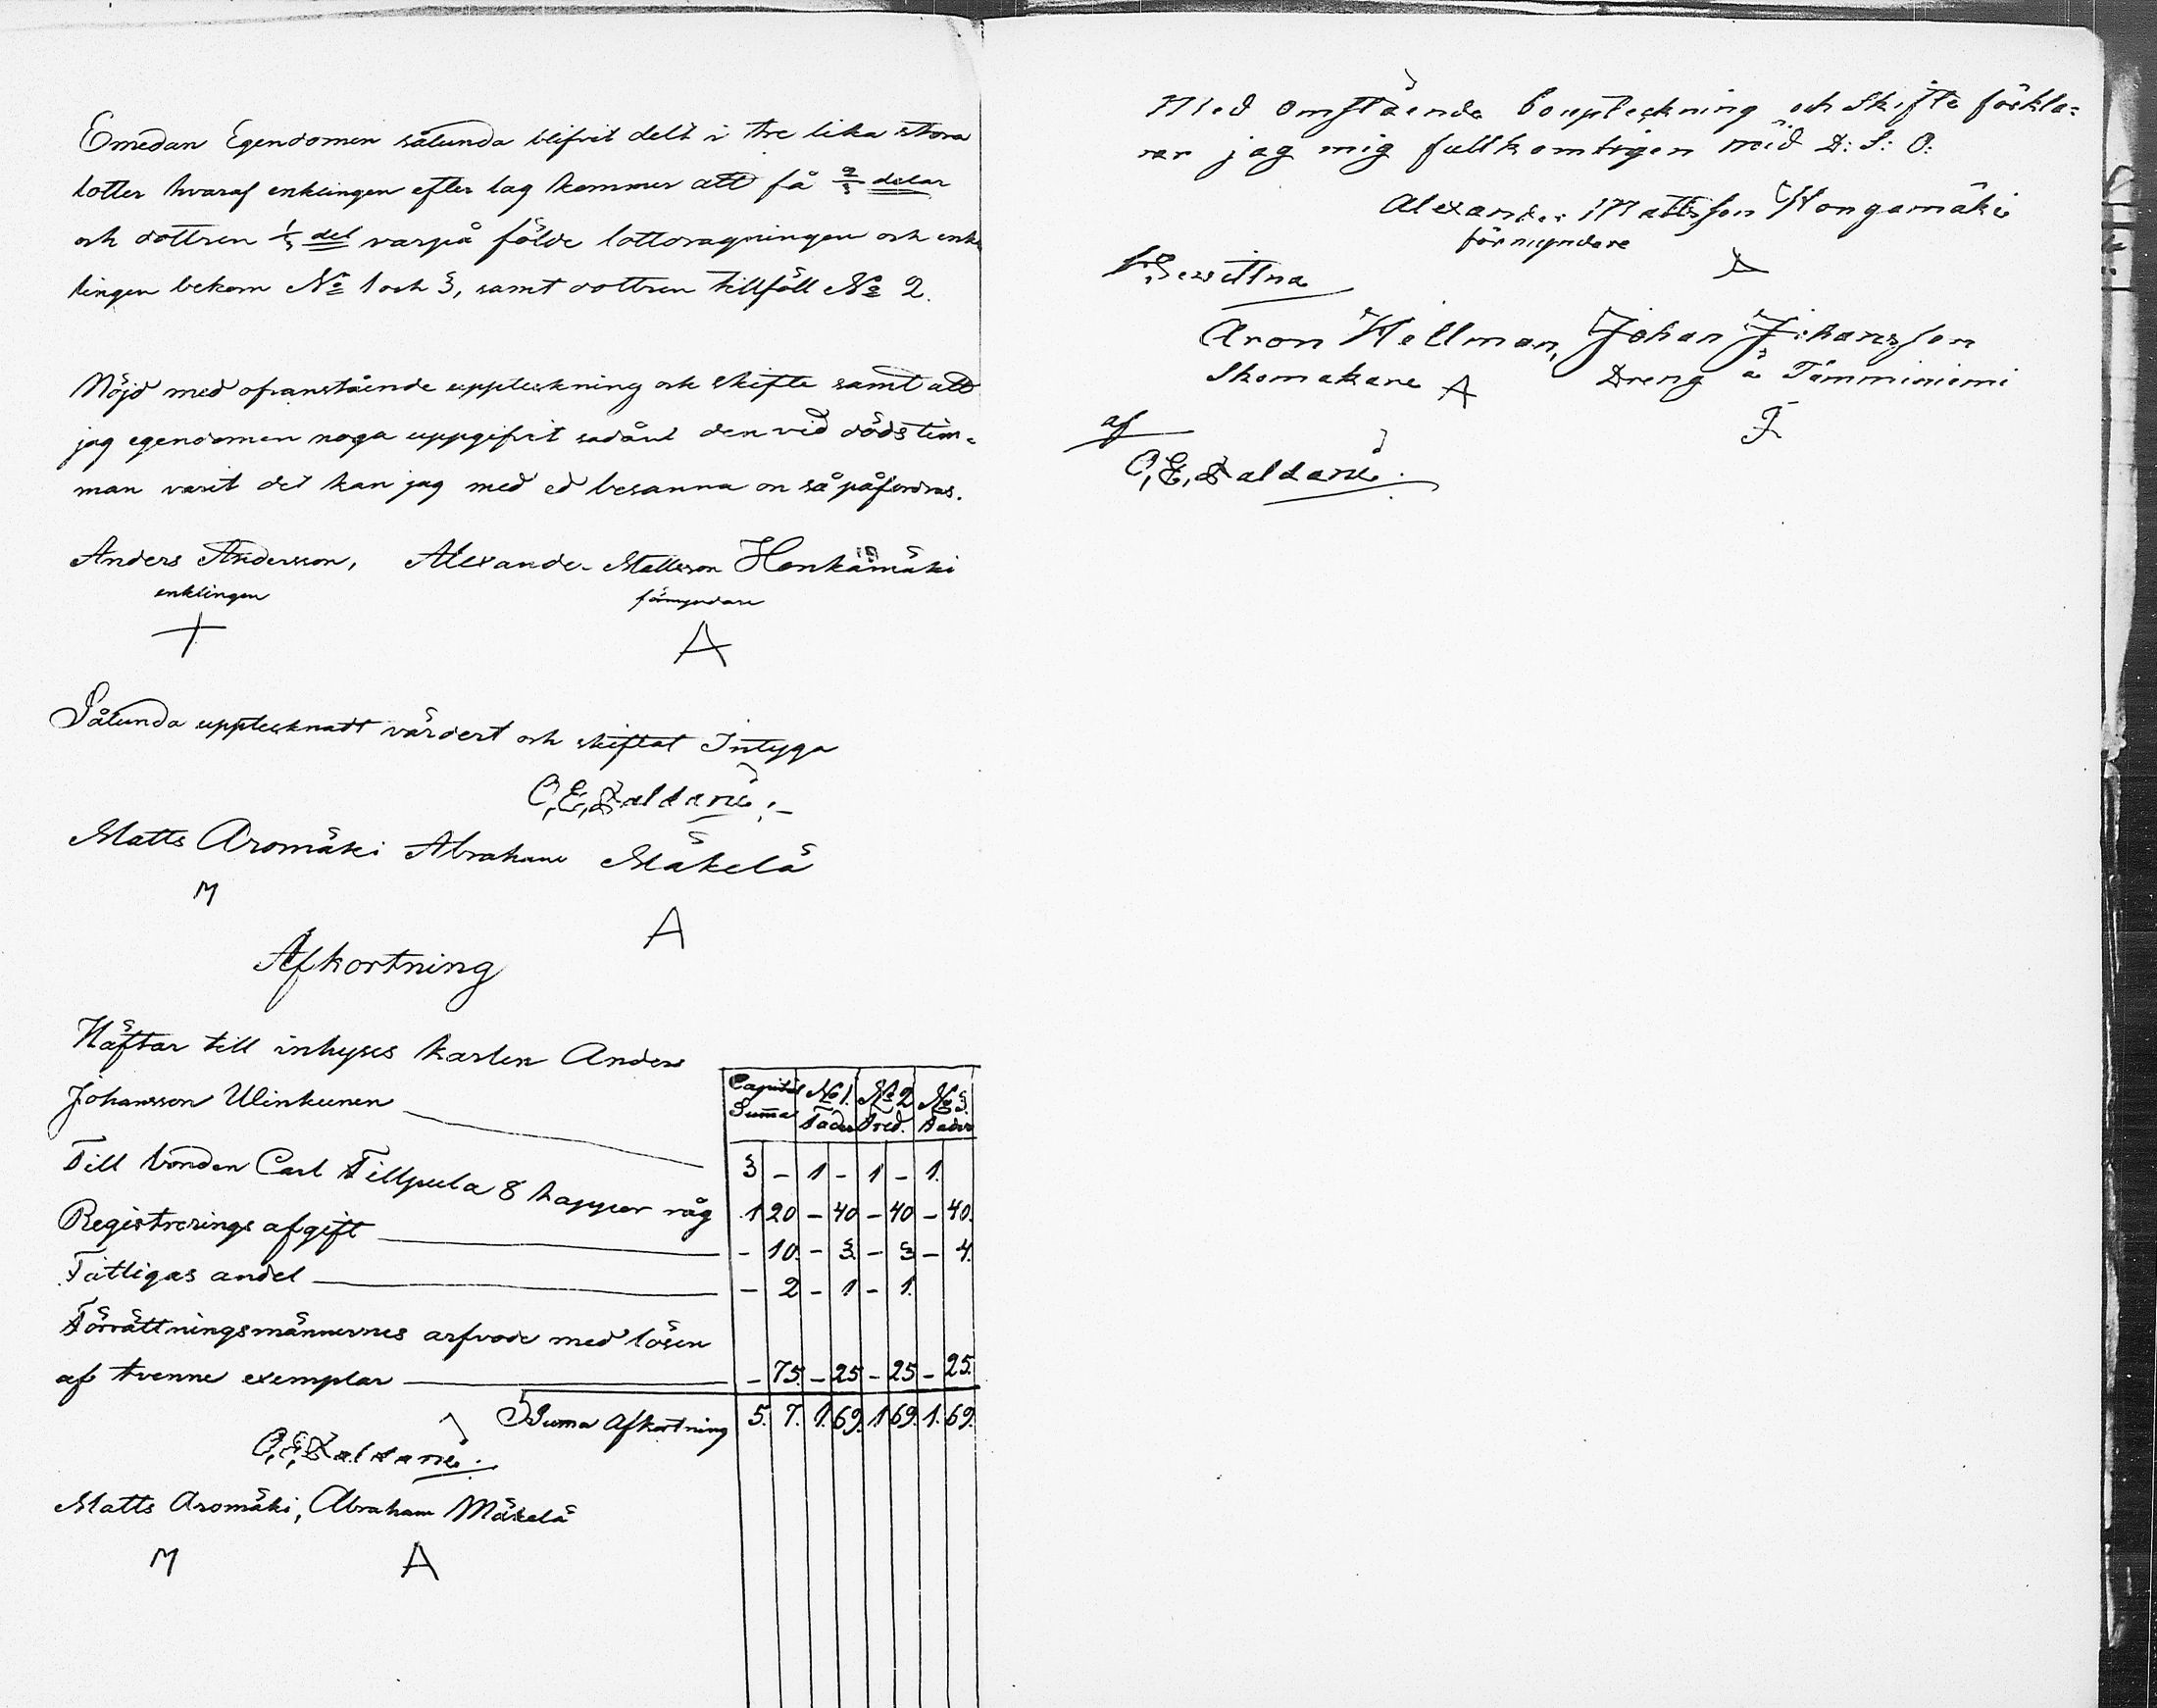 Emedan Egendomen sålunda blifvit delt i tre lika stora
lotter hvaraf enklingen efter lag kommer att få 2/3 delar
och dottren 1/3 del varpå földe lottdragningen och enk
lingen bekom No 1 och 3, samt dottren tillföll No 2.
Nöjd med ofvanstående uppteckning och skifte samt att
jag egendomen noga uppgifvit sådånt den vid dödstim=
man varit det kan jag med ed besanna om så påfordras.
Anders Andersson, Alexander Mattsson Honkamäki
enklingen förmyndare
+ A
Sålunda upptecknatt värdert och skiftat Intyga
C, E,
Matts Aromäki Abraham Mäkelä
M
A
Afkortning
Häftar till inhyses karlen Anders
Johansson Ulinkunen
Capital Summa No 1. Fader No 2 Bred. No 3. Fader
3 – 1 – 1 – 1.
Till bonden Carl Tillpula 8 kappor råg 1 20 – 40 – 40 – 40.
Registrerings afgift – 10. – 3. – 3 – 4.
Fattigas andel – 2 – 1 – 1.
Förrättningsmännernes arfvode med lösen
af tvenne exemplar – 75. – 25 – 25 – 25.
Suma Afkortning 5. 7. 1. 69. 1 69. 1. 69.
C, E,
Matts Aromäki, Abraham Mäkelä
M A
Med omstående bouptekning och Skifte förkla=
rar jag mig fullkomligen nöid D: S: O:
Alexander Mattsson Hongamäki
förmyndare
A
Bewittna
Aron Hellman, Johan Johansson
Skomakare A Dreng å Tämminiemi
F
af
C, E,